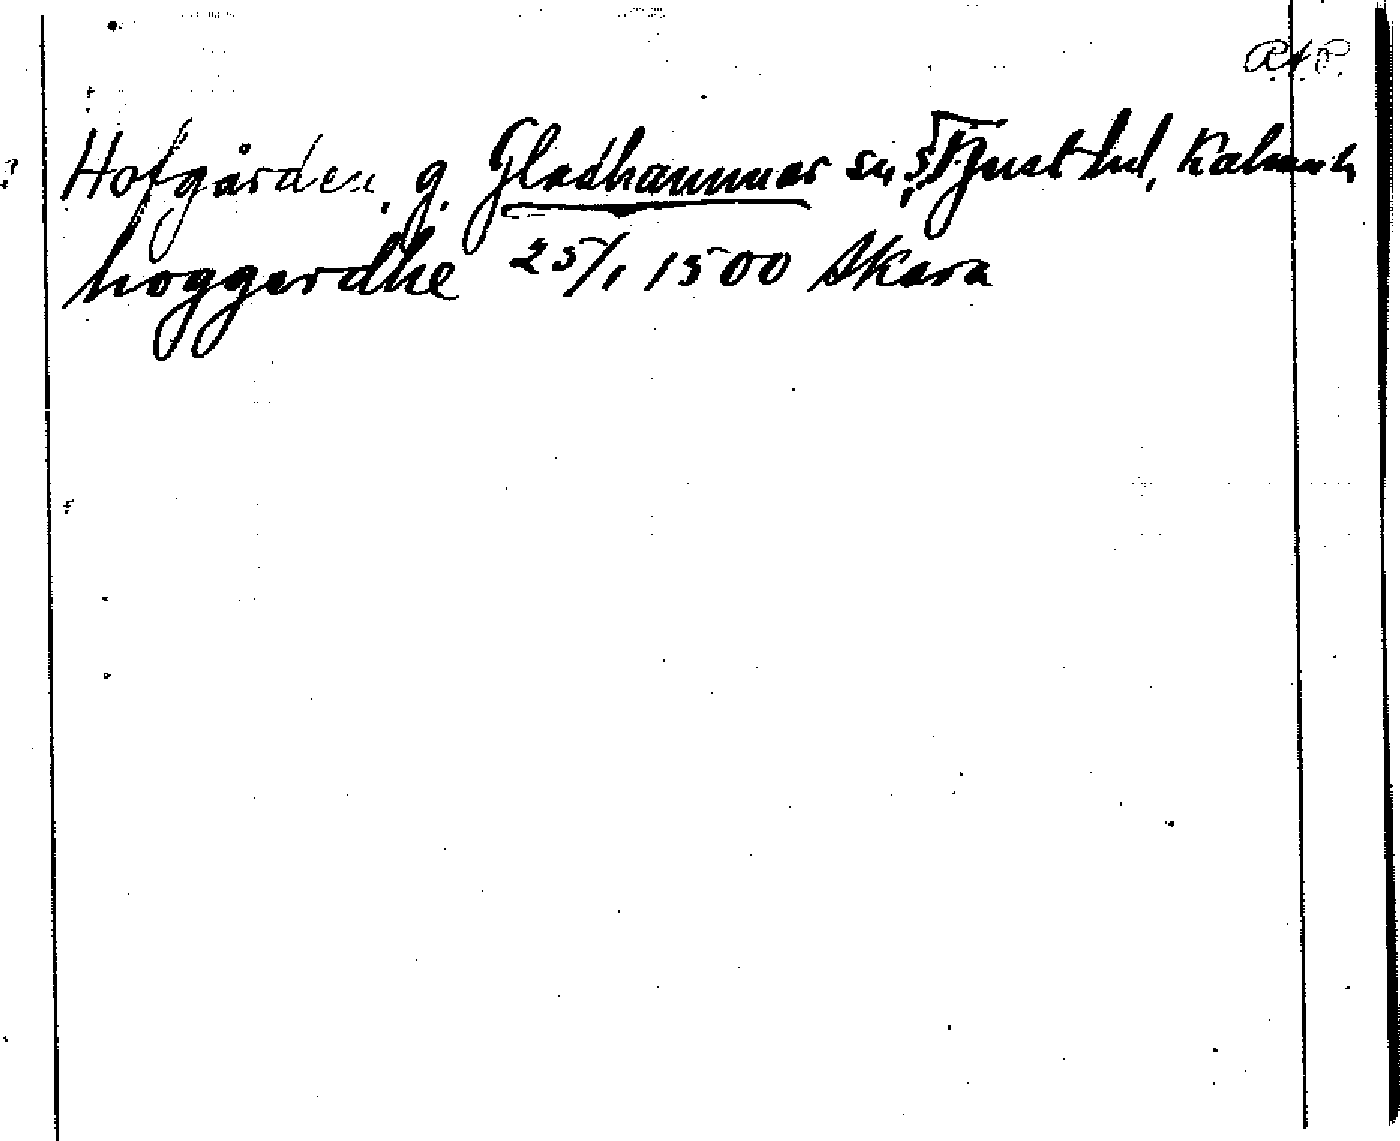 RAP
Hofgården, g. Gladhammar sn, S. Tjust hd, Kalmar l.
hoggerdhe 25/1 1500 Skara